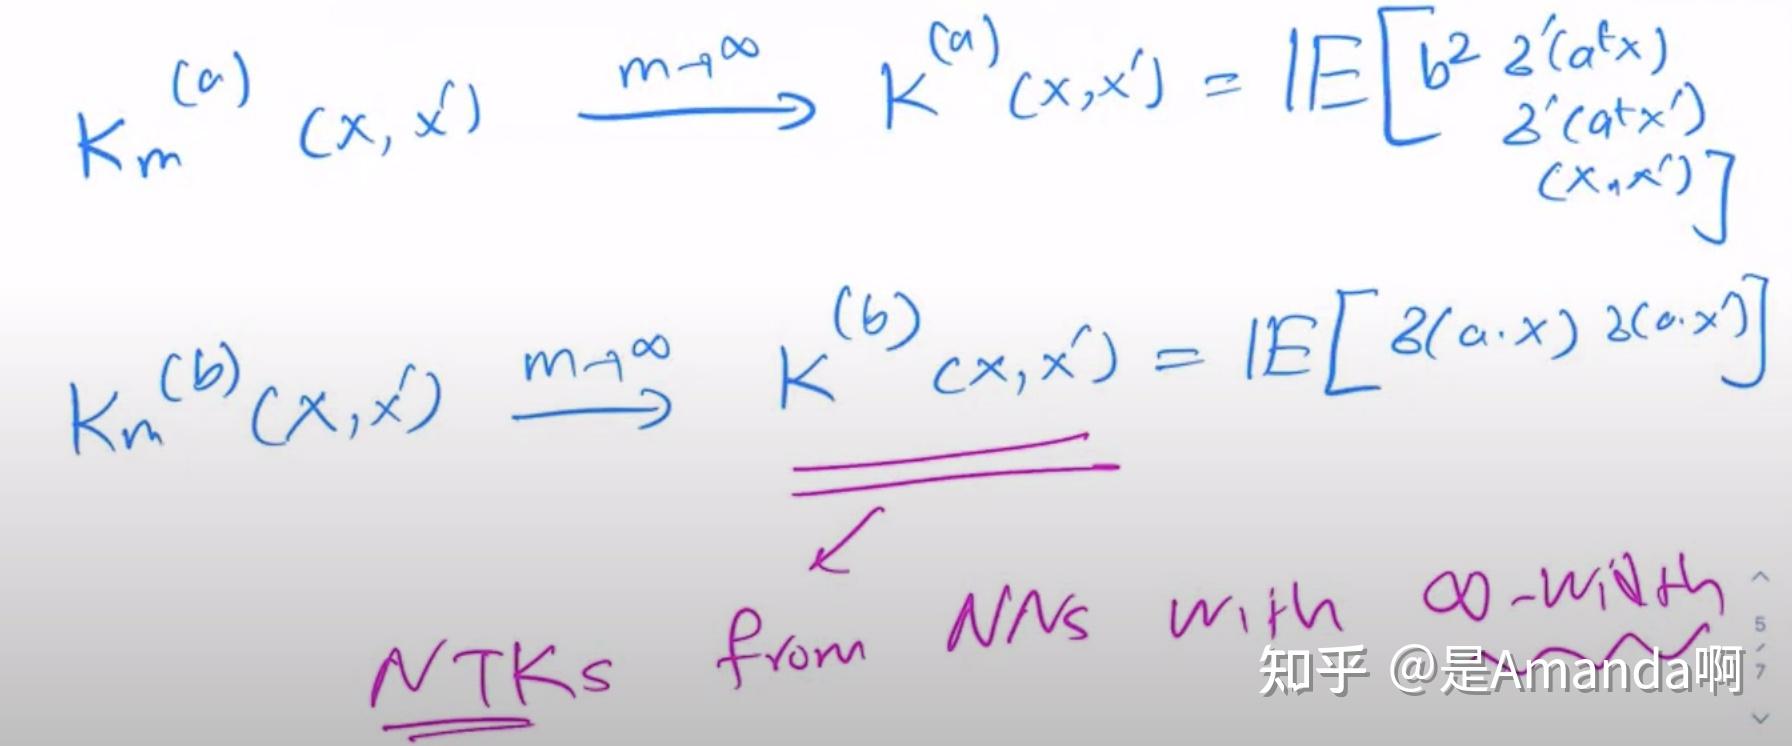 Kₘ⁽ᵃ⁾ (x, x') —m→∞→ K⁽ᵃ⁾ (x, x') = 𝔼[b² σ'(aᵗx)
σ'(aᵗx')
(x, x')]
Kₘ⁽ᵇ⁾ (x, x') —m→∞→ K⁽ᵇ⁾ (x, x') = 𝔼[σ(a·x) σ(a·x')]
NTKs from NNs with ∞-width
知乎 @是Amanda啊
5/7